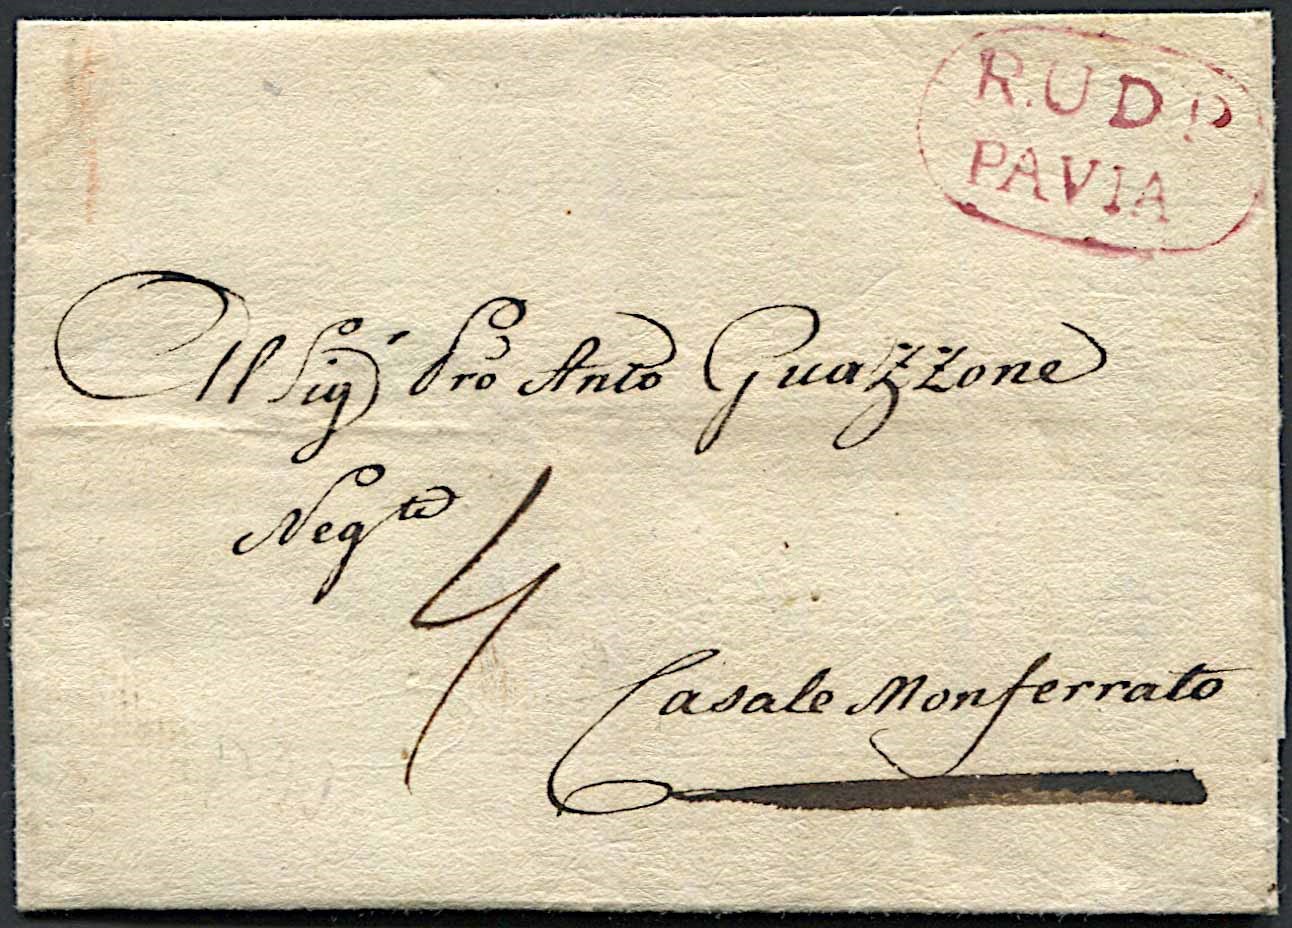 R.U D.P
PAVIA
Al Sigr Pro Anto Guazzone
Negte
4
Casale Monferrato